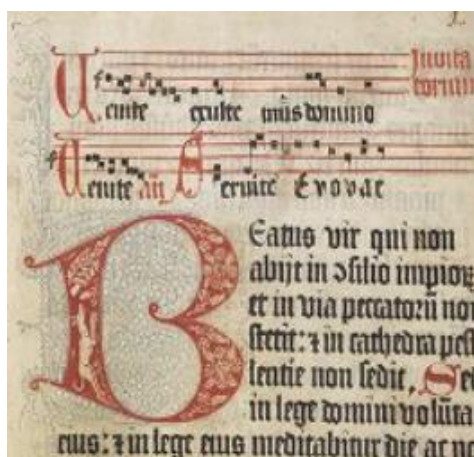 Uenite exulte mus domino Inuita
torium
Uenite añ Seruite Euouae
Beatus vir qui non
abijt in ↄsilio impioꝝ
et in via peccatorū non
stetit: ⁊ in cathedra pest
lentie non sedit, Sed
in lege domini volūta
eius: ⁊ in lege eius meditabitur die ac no